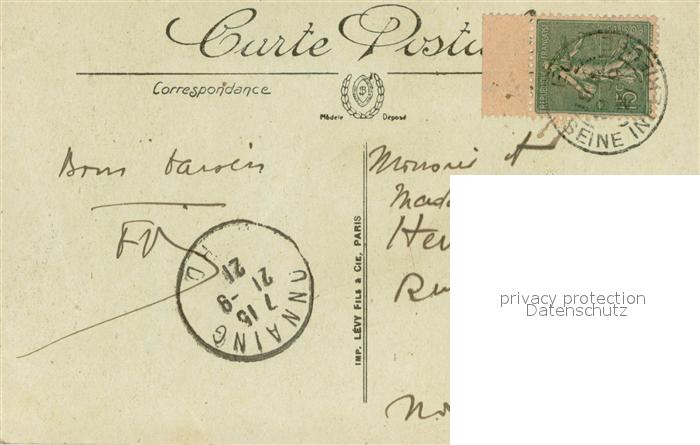 Carte Posta
Correspondance
Modèle Déposé
REPUBLIQUE FRANÇAISE
15c
SEINE INF
Bons baisers
FV
ONNAING
7 15 -9
21 21
IMP. LÉVY FILS & CIE, PARIS
Monsieur et
Mada
Hen
Ru
No
privacy protection
Datenschutz